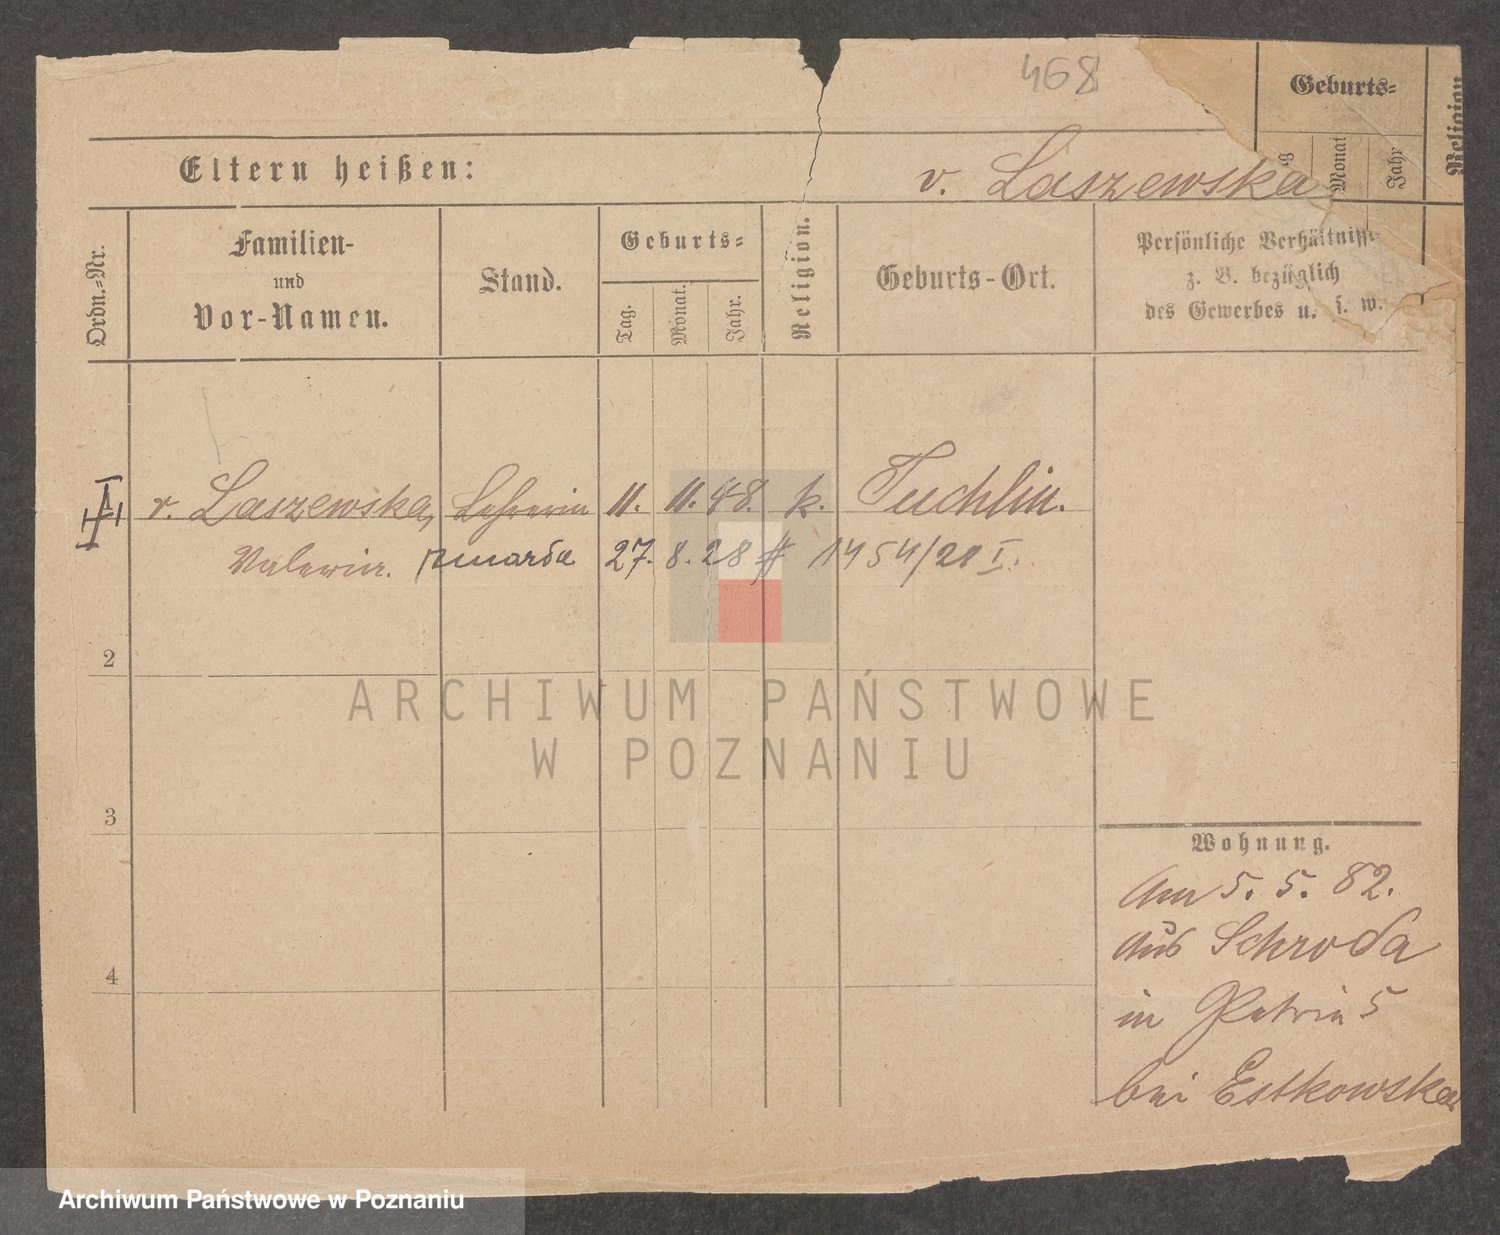 468
Geburts=
Monat
Jahr
Religion
Eltern heißen:
v. Laszewska
Ordn.=Nr.
Familien-
und
Vor-Namen.
Stand.
Geburts=
Tag.
Monat.
Jahr.
Religion.
Geburts-Ort.
Persönliche Verhältnisse
z. B. bezüglich
des Gewerbes u. s. w.
v. Laszewska, Lehrerin 11. 11. 48. k. Tuchlin.
Valeria. 27. 8. 28 # 1454/28 I.
2
ARCHIWUM PAŃSTWOWE
W POZNANIU
3
Wohnung.
Am 5. 5. 82.
aus Schroda
in Petrin 5
bei Estkowska
4
Archiwum Państwowe w Poznaniu